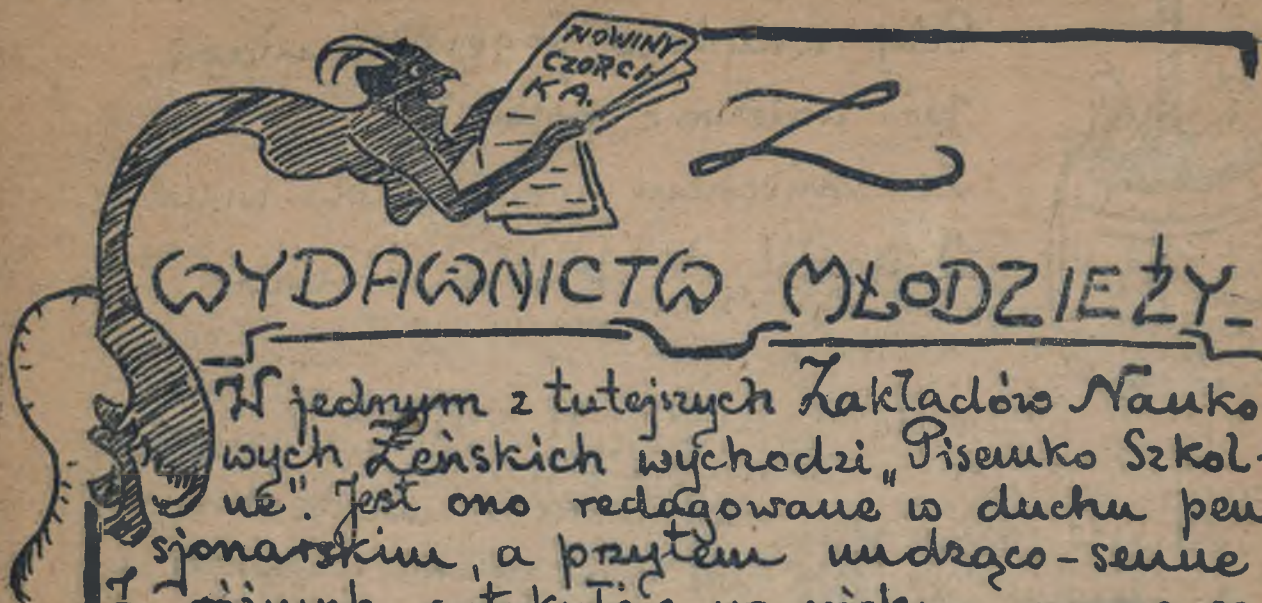 NOWINY
CZORCI
KA.
Z
WYDAWNICTW MŁODZIEŻY_
W jednym z tutejszych Zakładów Nauko
wych Żeńskich wychodzi „Pisemko Szkol-
ne". Jest ono redagowane w duchu pen
sjonarskim, a przytem nudząco-senne